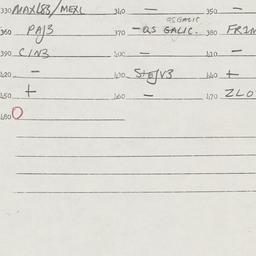 330 MAXL83/MEXL 340 — 350 —
as GALIC
360 PAJ3 370 — as GALIC. 380
390 CIN3 400 — 410 —
420 — 430 440 +
450 + 460 — 470 ZLO
480